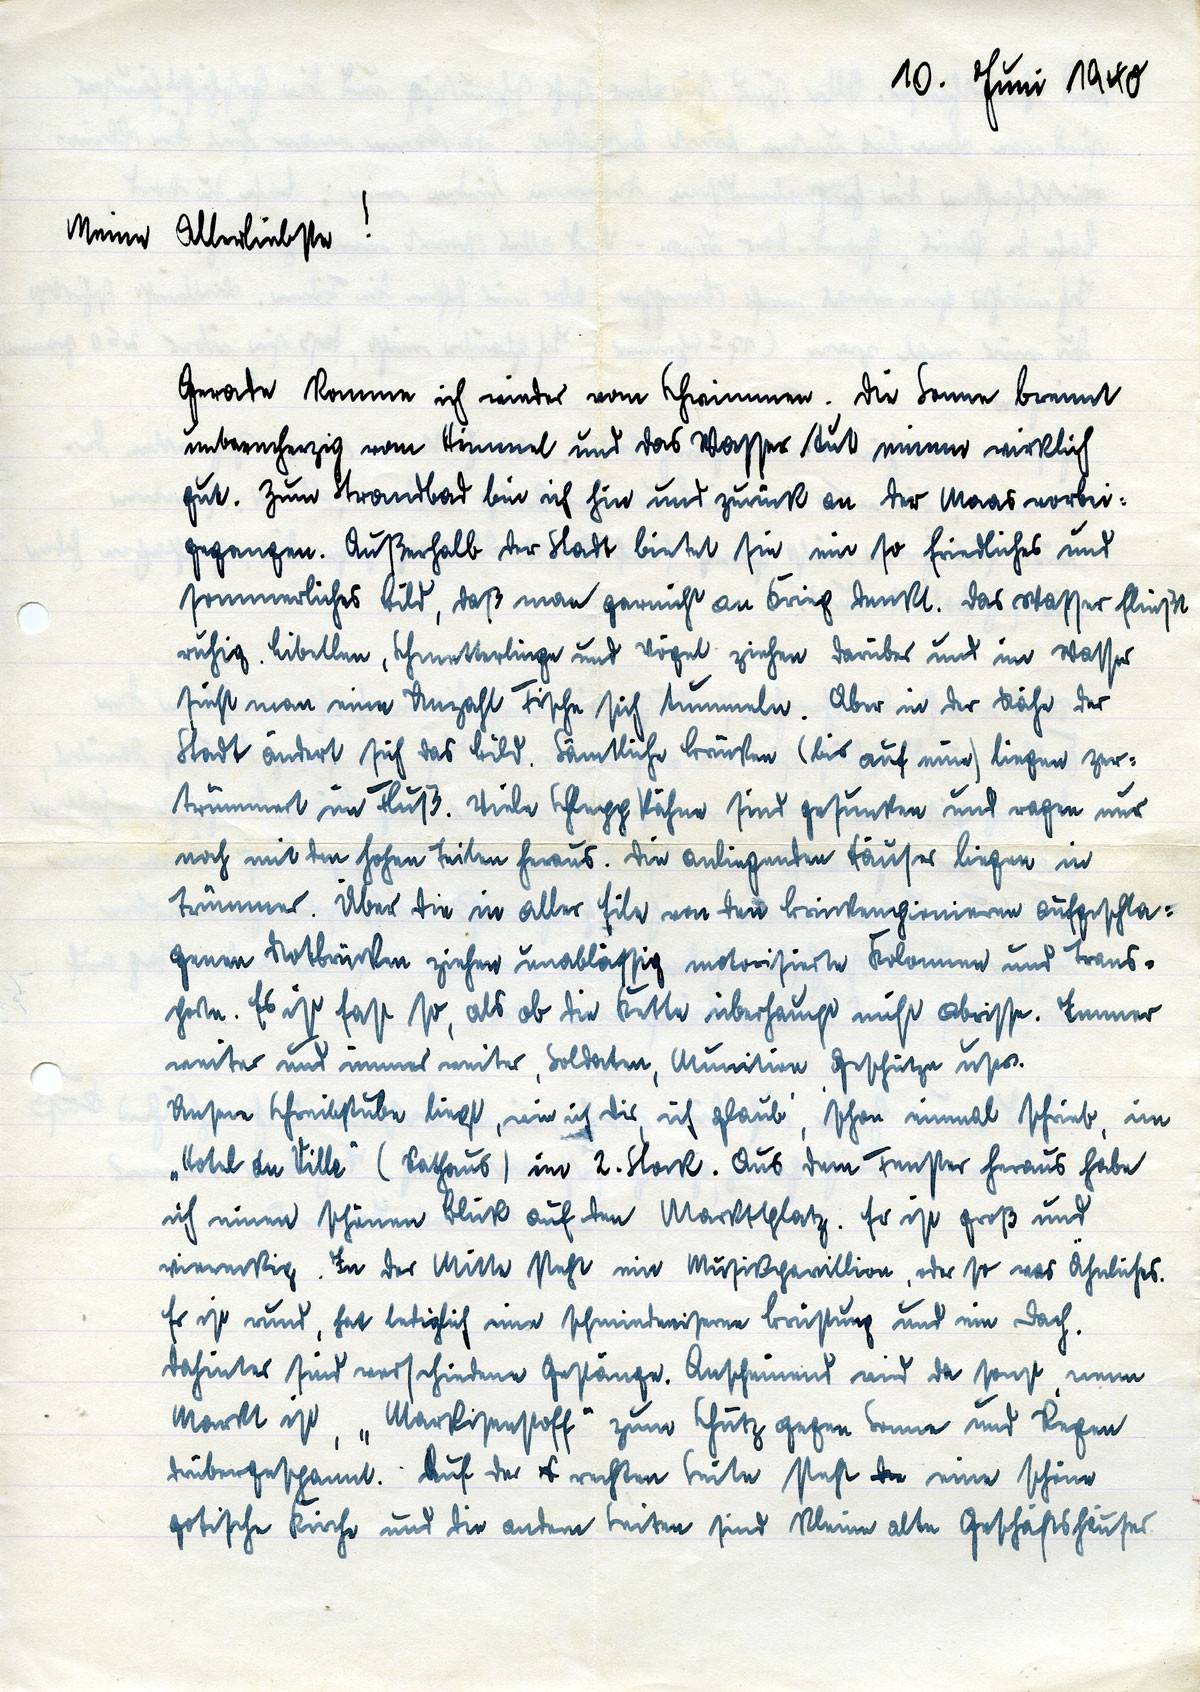 10. Juni 1940
Meine Allerliebste!
Gerade komme ich wieder vom Schwimmen. Die Sonne brennt
unbarmherzig vom Himmel und das Wasser tut einem wirklich
gut. Zum Strandbad bin ich hin und zurück an der Maas vorbei=
gegangen. Außerhalb der Stadt bietet sie ein so friedliches und
sommerliches Bild, daß man garnicht an Krieg denkt. Das Wasser fließt
ruhig. Libellen, Schmetterlinge und Vögel ziehen darüber und im Wasser
sieht man eine Anzahl Fische sich tummeln. Aber in der Nähe der
Stadt ändert sich das Bild. Sämtliche Brücken (bis auf eine) liegen zer=
trümmert im Fluß. Viele Schleppkähne sind gesunken und ragen nur
noch mit den hohen Seiten heraus. Die anliegenden Häuser liegen in
Trümmer. Über die in aller Eile von den Brückenpionieren aufgeschla=
genen Notbrücken ziehen unablässig motorisierte Kolonnen und Trans=
porte. Es ist fast so, als ob die Kette überhaupt nicht abrisse. Immer
weiter und immer weiter, Soldaten, Munition, Geschütze usw.
Unsere Schreibstube liegt, wie ich Dir, ich glaub', schon einmal schrieb, im
„Hotel de Ville" (Rathaus) im 2. Stock. Aus dem Fenster heraus habe
ich einen schönen Blick auf den Marktplatz. Er ist groß und
viereckig. In der Mitte steht ein Musikpavillion, oder so was Ähnliches.
Er ist rund, hat lediglich eine schmiedeeiserne Brüstung und ein Dach.
Dahinter sind verschiedene Gestänge. Anscheinend wird da sonst, wenn
Markt ist, „Markisenstoff" zum Schutz gegen Sonne und Regen
drübergespannt. Auf der rechten Seite steht die eine schöne
gotische Kirche und die andern Seiten sind kleine alte Geschäftshäuser